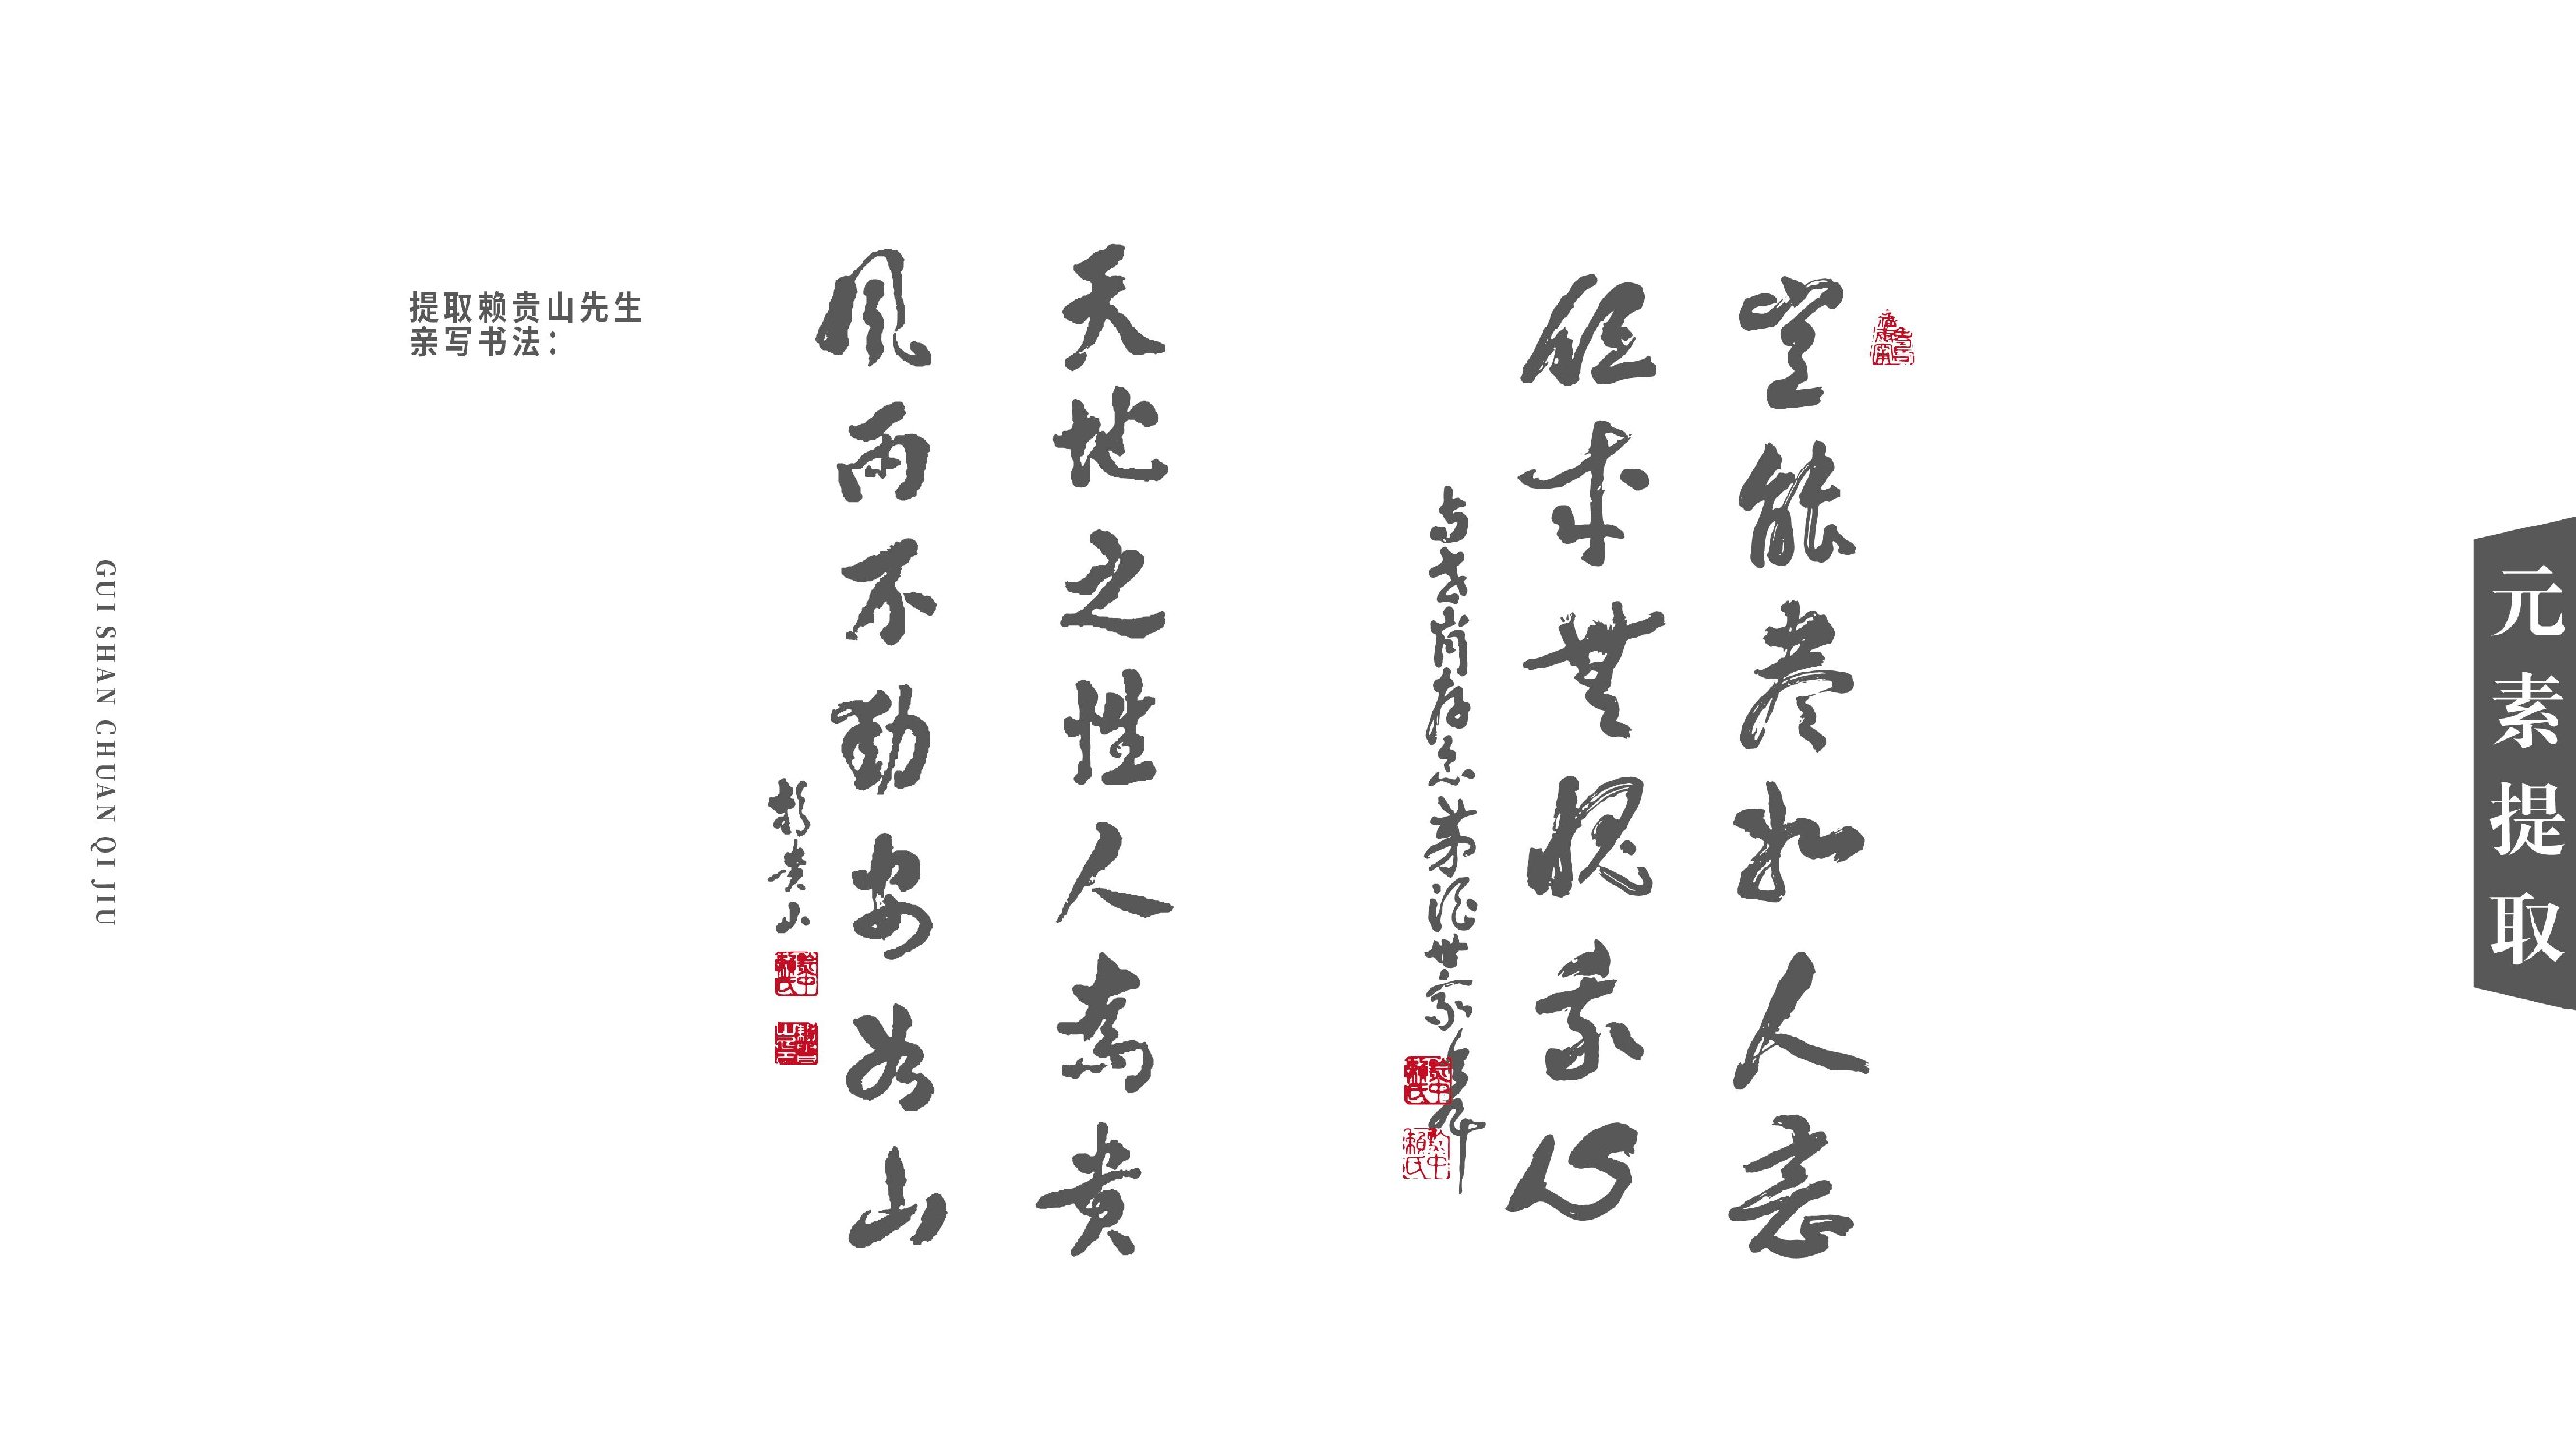 提取赖贵山先生
亲写书法：
豈能盡如人意
但求無愧我心
天地之性人為貴
風雨不動安如山
賴贵山
元素提取
GUI SHAN CHUAN QI JIU